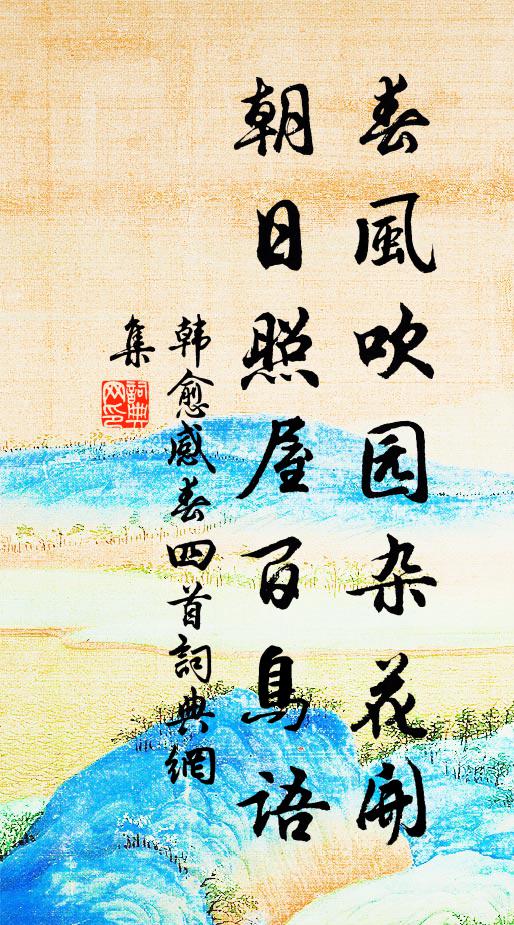 春風吹园杂花開
朝日照屋百鳥语
韩愈感春四首詞典網
集
詞典网印